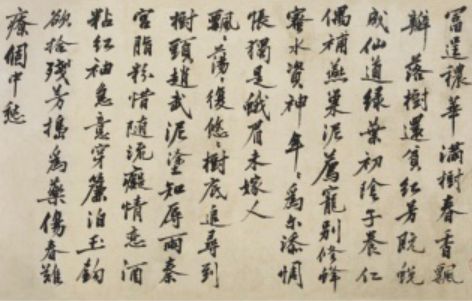 富逞穠華滿樹春香飄
瓣落樹還貧紅芳既蛻
成仙道綠葉初陰子養仁
偶補燕巢泥薦寵別修蜂
蜜水資神年々為尔添惆
悵獨是蛾眉未嫁人
飄蕩復悠々樹底追尋到
樹頭趙武泥塗知辱雨秦
宮脂粉惜隨流癡情戀酒
粘紅袖急意穿簾泊玉鈎
欲拾殘芳搗為藥傷春難
療個中愁